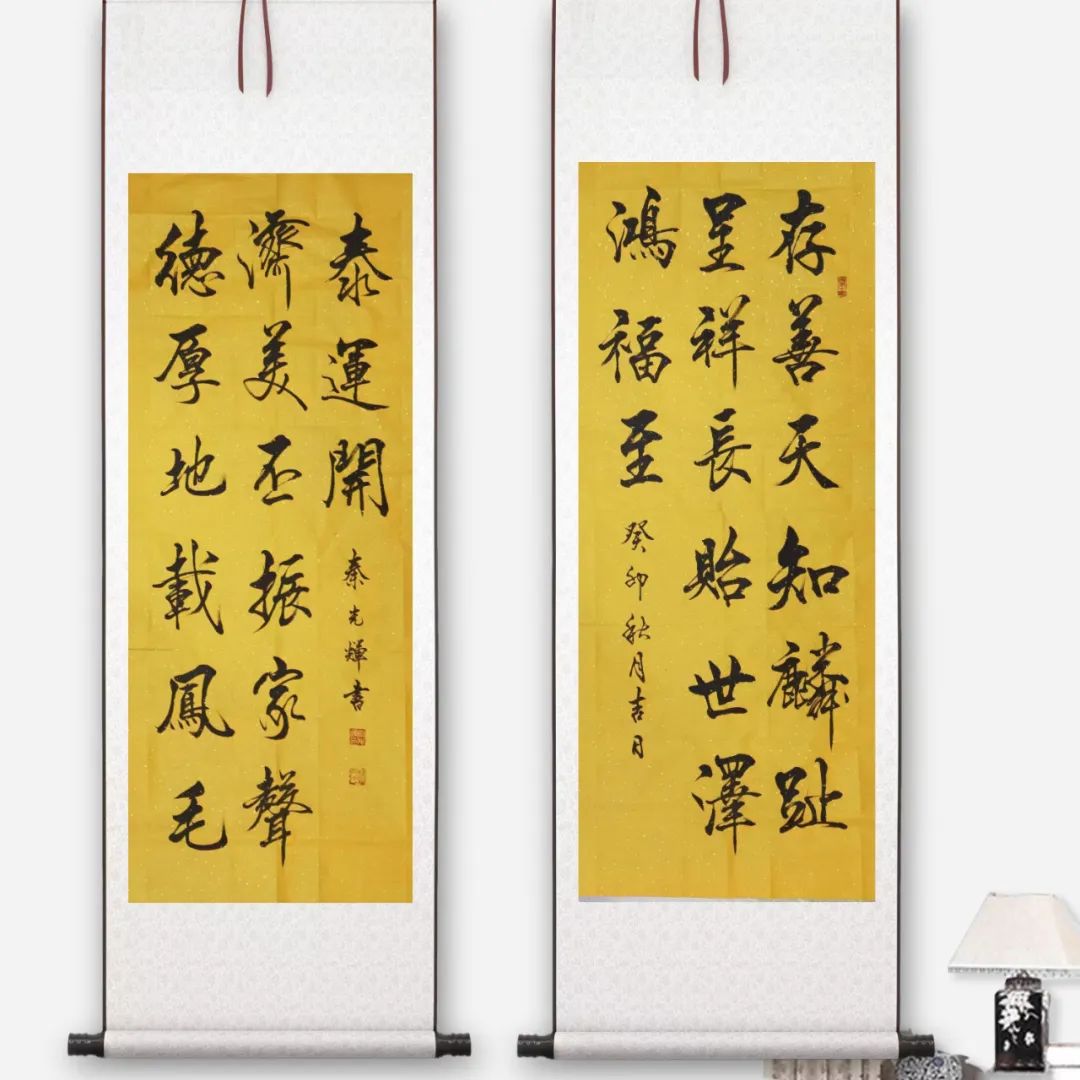 存善天知麟趾
呈祥長貽世澤
鴻福至
癸卯秋月吉日
德厚地載鳳毛
濟美丕振家聲
泰運開
秦光輝書